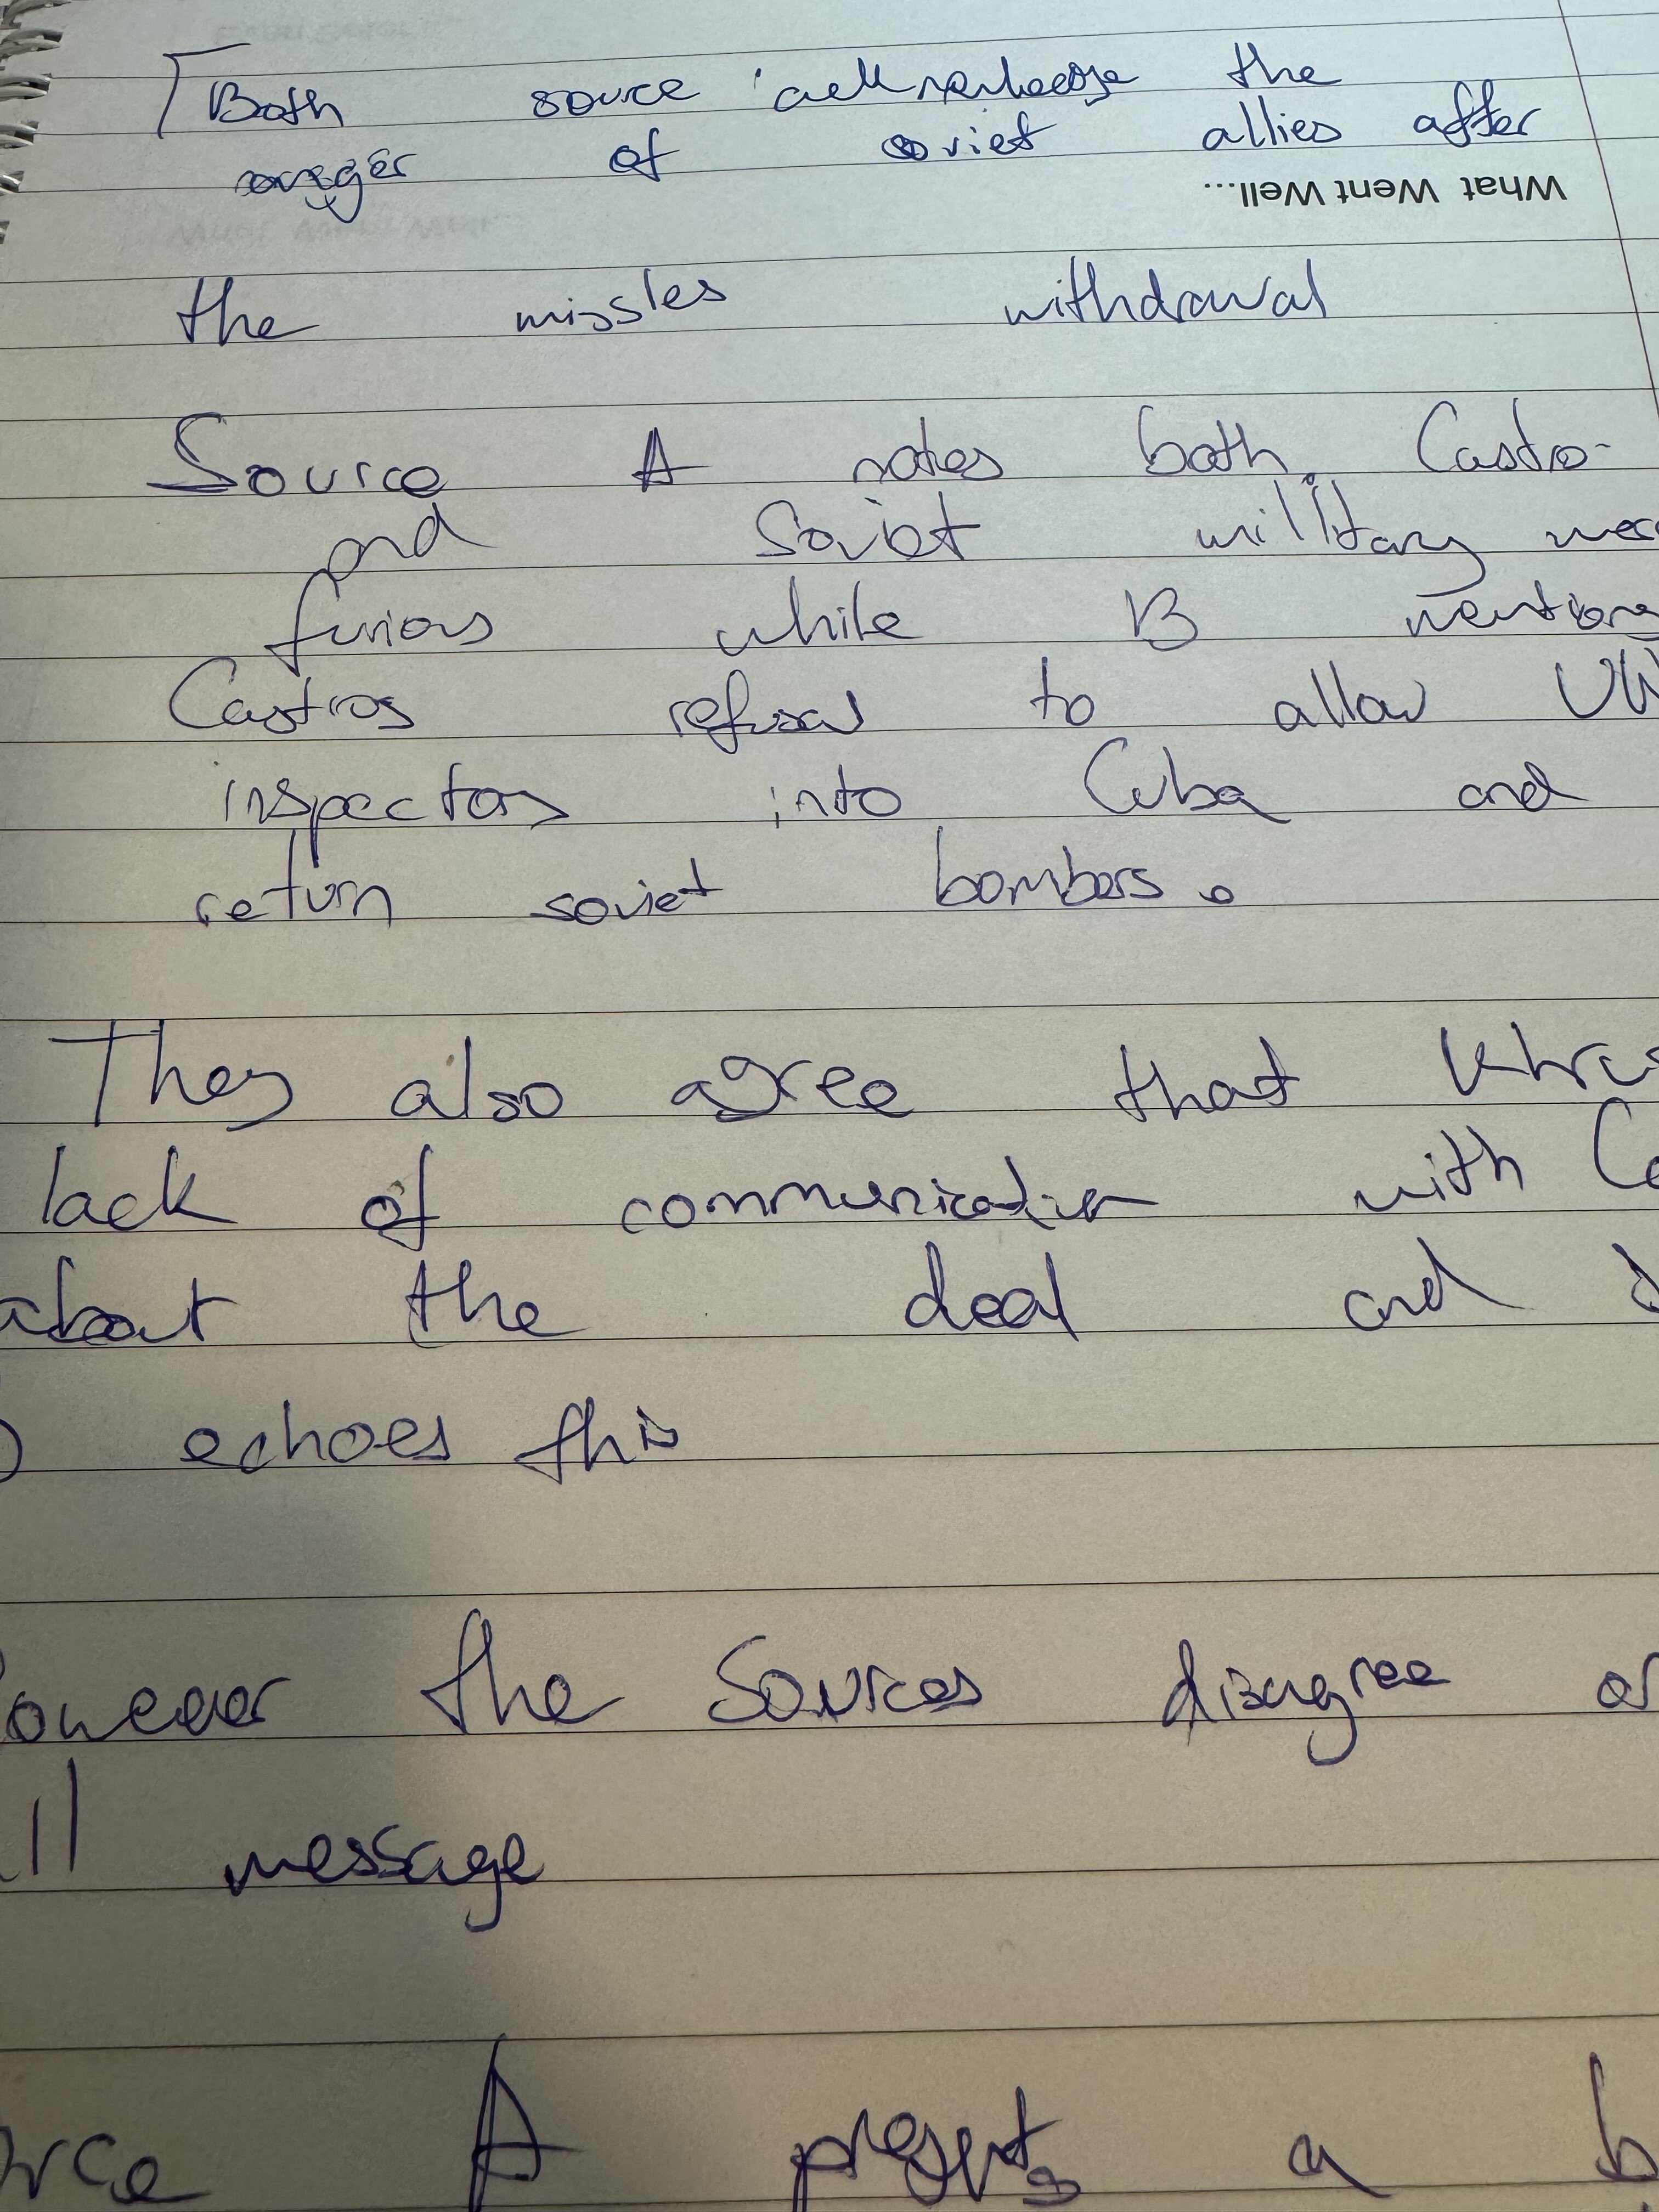 Both source acknowledge the
anger of soviet allies after
What Went Well...
the missles withdrawal
Source A notes both Castro
and Soviet millitary
furious while B mentions
Castros refusal to allow UN
inspectors into Cuba and
return soviet bombers.
They also agree that
lack of communication with
about the deal and
echoes this
the Sources disagree
message
A presents a